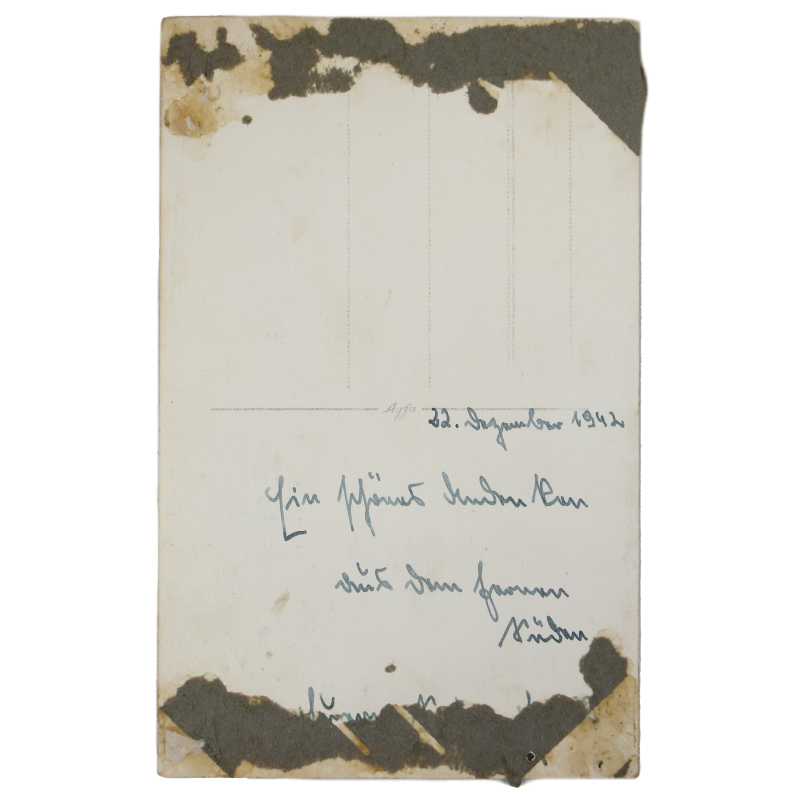 Agfa
22. Dezember 1942
Ein schönes Andenken
aus dem fernen
Süden